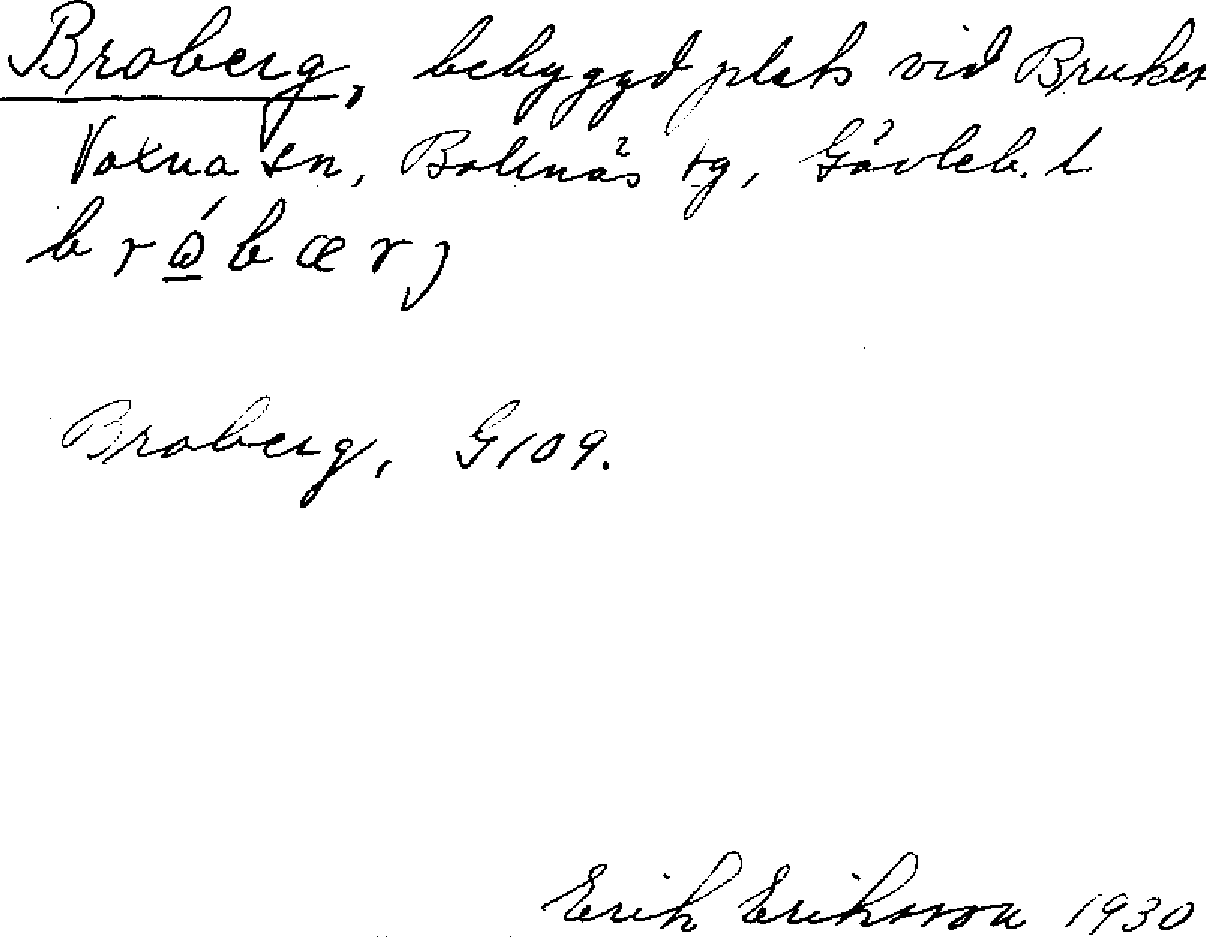 Broberg, bebyggd plats vid Bruket
Voxna sn, Bollnäs tg, Gävleb. l
b r ó̲ b æ r j
Broberg, G 109.
Erik Eriksson 1930